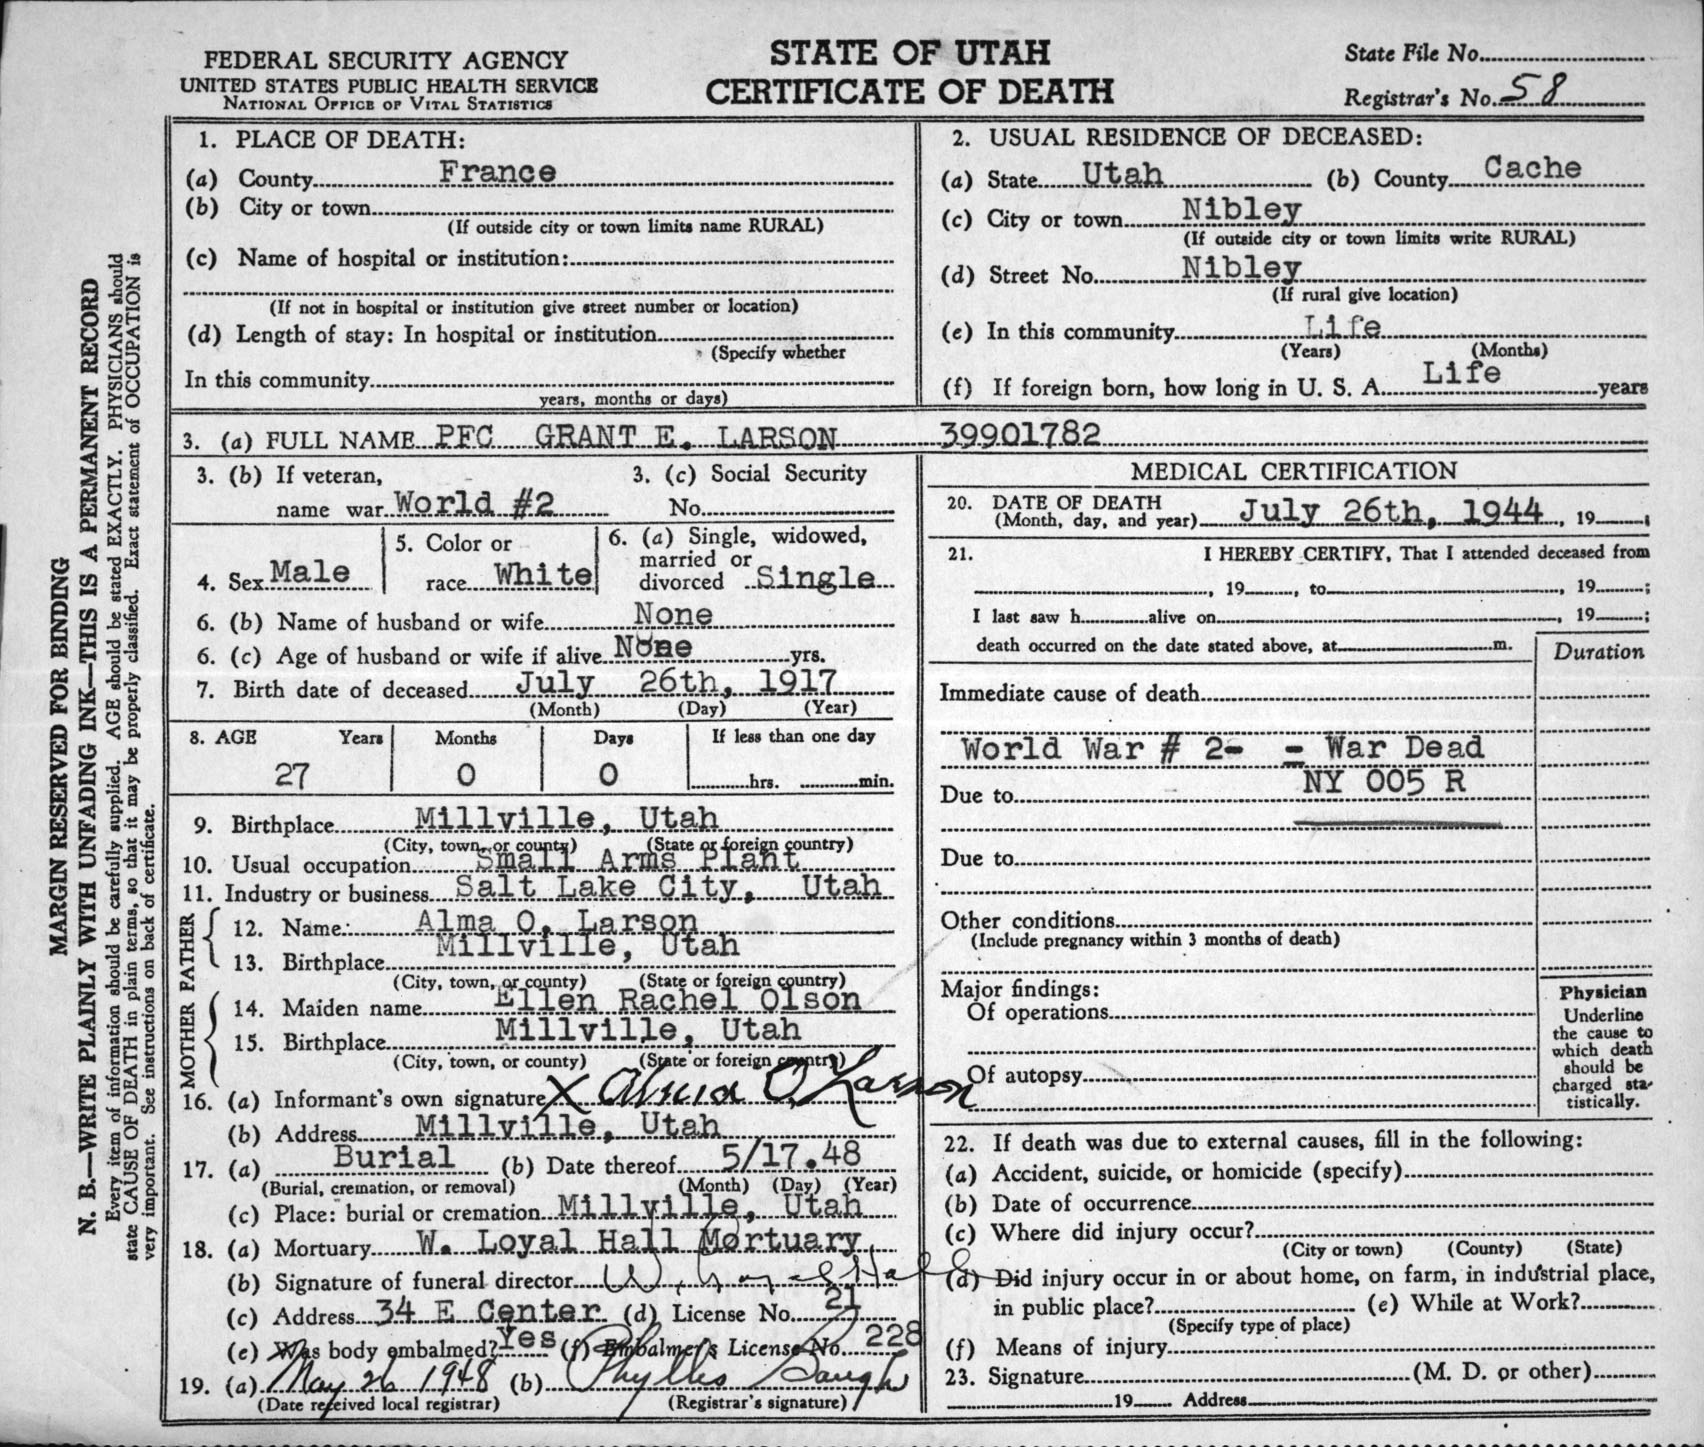 FEDERAL SECURITY AGENCY
UNITED STATES PUBLIC HEALTH SERVICE
NATIONAL OFFICE OF VITAL STATISTICS
STATE OF UTAH
CERTIFICATE OF DEATH
State File No.
Registrar's No. 58
MARGIN RESERVED FOR BINDING
N. B.—WRITE PLAINLY WITH UNFADING INK—THIS IS A PERMANENT RECORD
Every item of information should be carefully supplied. AGE should be stated EXACTLY. PHYSICIANS should
state CAUSE OF DEATH in plain terms, so that it may be properly classified. Exact statement of OCCUPATION is
very important. See instructions on back of certificate.
1. PLACE OF DEATH:
(a) County France
(b) City or town
(If outside city or town limits name RURAL)
(c) Name of hospital or institution:
(If not in hospital or institution give street number or location)
(d) Length of stay: In hospital or institution
(Specify whether
In this community
years, months or days)
2. USUAL RESIDENCE OF DECEASED:
(a) State Utah (b) County Cache
(c) City or town Nibley
(If outside city or town limits write RURAL)
(d) Street No. Nibley
(If rural give location)
(e) In this community Life
(Years) (Months)
(f) If foreign born, how long in U. S. A. Life years
3. (a) FULL NAME PFC GRANT E. LARSON 39901782
3. (b) If veteran,
name war World #2
3. (c) Social Security
No.
4. Sex Male
5. Color or
race White
6. (a) Single, widowed,
married or
divorced Single
6. (b) Name of husband or wife None
6. (c) Age of husband or wife if alive None yrs.
7. Birth date of deceased July 26th, 1917
(Month) (Day) (Year)
8. AGE Years Months Days If less than one day
27 0 0 hrs. min.
9. Birthplace Millville, Utah
(City, town, or county) (State or foreign country)
10. Usual occupation Small Arms Plant
11. Industry or business Salt Lake City, Utah
FATHER
12. Name: Alma O. Larson
13. Birthplace Millville, Utah
(City, town, or county) (State or foreign country)
MOTHER
14. Maiden name Ellen Rachel Olson
15. Birthplace Millville, Utah
(City, town, or county) (State or foreign country)
16. (a) Informant's own signature X Alma O. Larson
(b) Address Millville, Utah
17. (a) Burial (b) Date thereof 5/17.48
(Burial, cremation, or removal) (Month) (Day) (Year)
(c) Place: burial or cremation Millville, Utah
18. (a) Mortuary W. Loyal Hall Mortuary
(b) Signature of funeral director W. Loyal Hall
(c) Address 34 E Center (d) License No. 21
(e) Was body embalmed? Yes (f) Embalmer's License No. 228
19. (a) May 26 1948 (b) Phyllis Baugh
(Date received local registrar) (Registrar's signature)
MEDICAL CERTIFICATION
20. DATE OF DEATH
(Month, day, and year) July 26th, 1944, 19 ;
21. I HEREBY CERTIFY, That I attended deceased from
, 19 , to , 19 ;
I last saw h alive on , 19 ;
death occurred on the date stated above, at m.
Duration
Immediate cause of death
World War # 2- - War Dead
Due to NY 005 R
Due to
Other conditions
(Include pregnancy within 3 months of death)
Major findings:
Of operations
Of autopsy
Physician
Underline
the cause to
which death
should be
charged sta-
tistically.
22. If death was due to external causes, fill in the following:
(a) Accident, suicide, or homicide (specify)
(b) Date of occurrence
(c) Where did injury occur?
(City or town) (County) (State)
(d) Did injury occur in or about home, on farm, in industrial place,
in public place? (e) While at Work?
(Specify type of place)
(f) Means of injury
23. Signature (M. D. or other)
19 Address